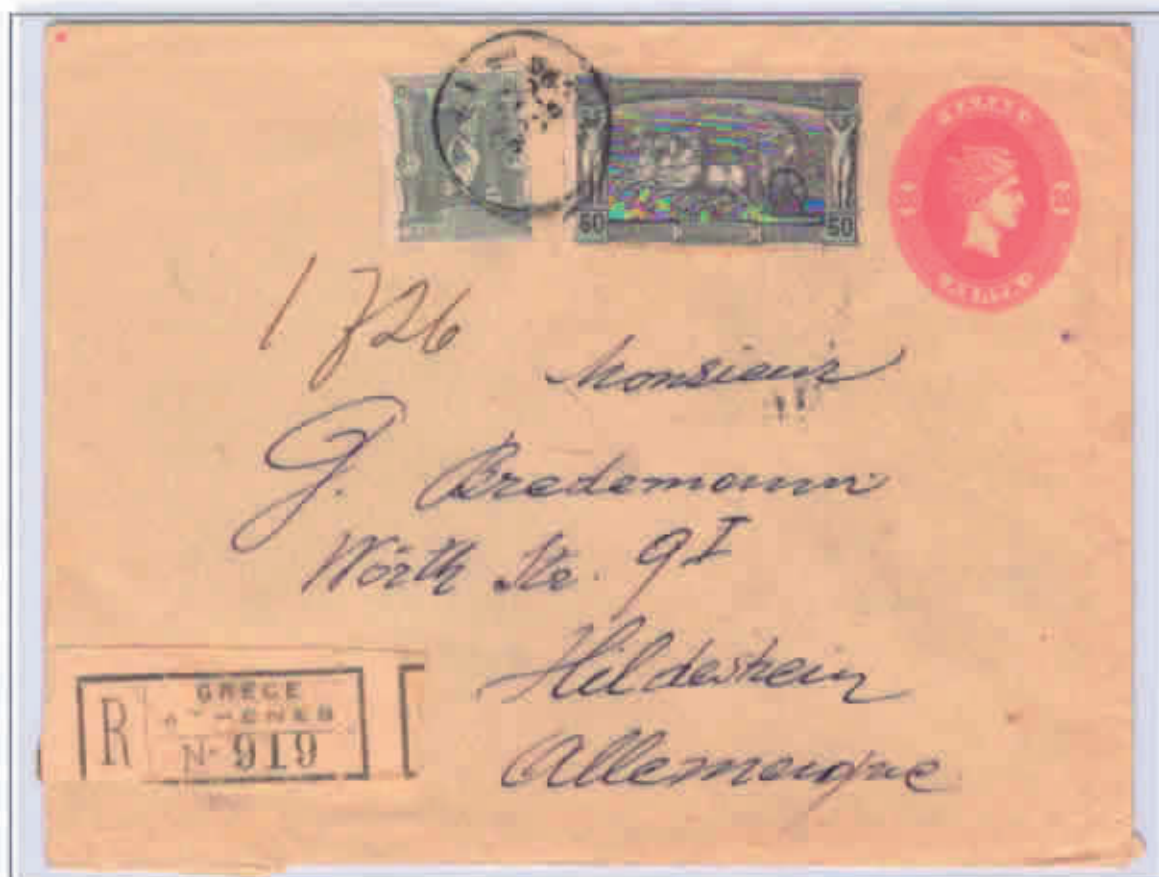 60 60
1726
Monsieur
G. Bredemann
Wörth Str. 9 I
Hildesheim
Allemagne
R
GRECE
ATHENES
No 919